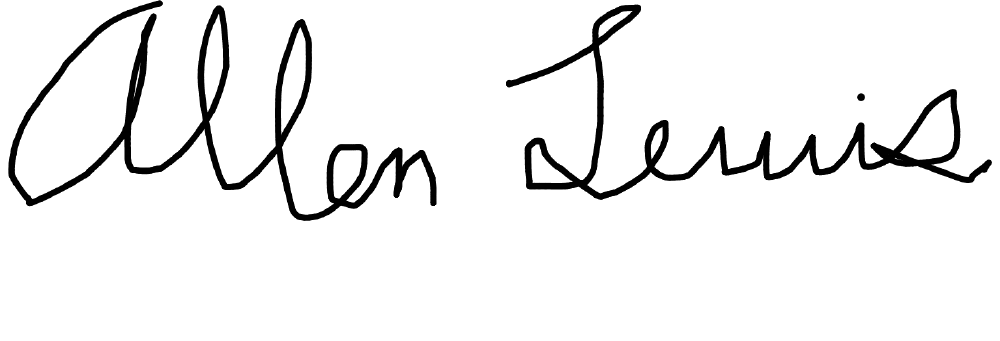 Allen Lewis